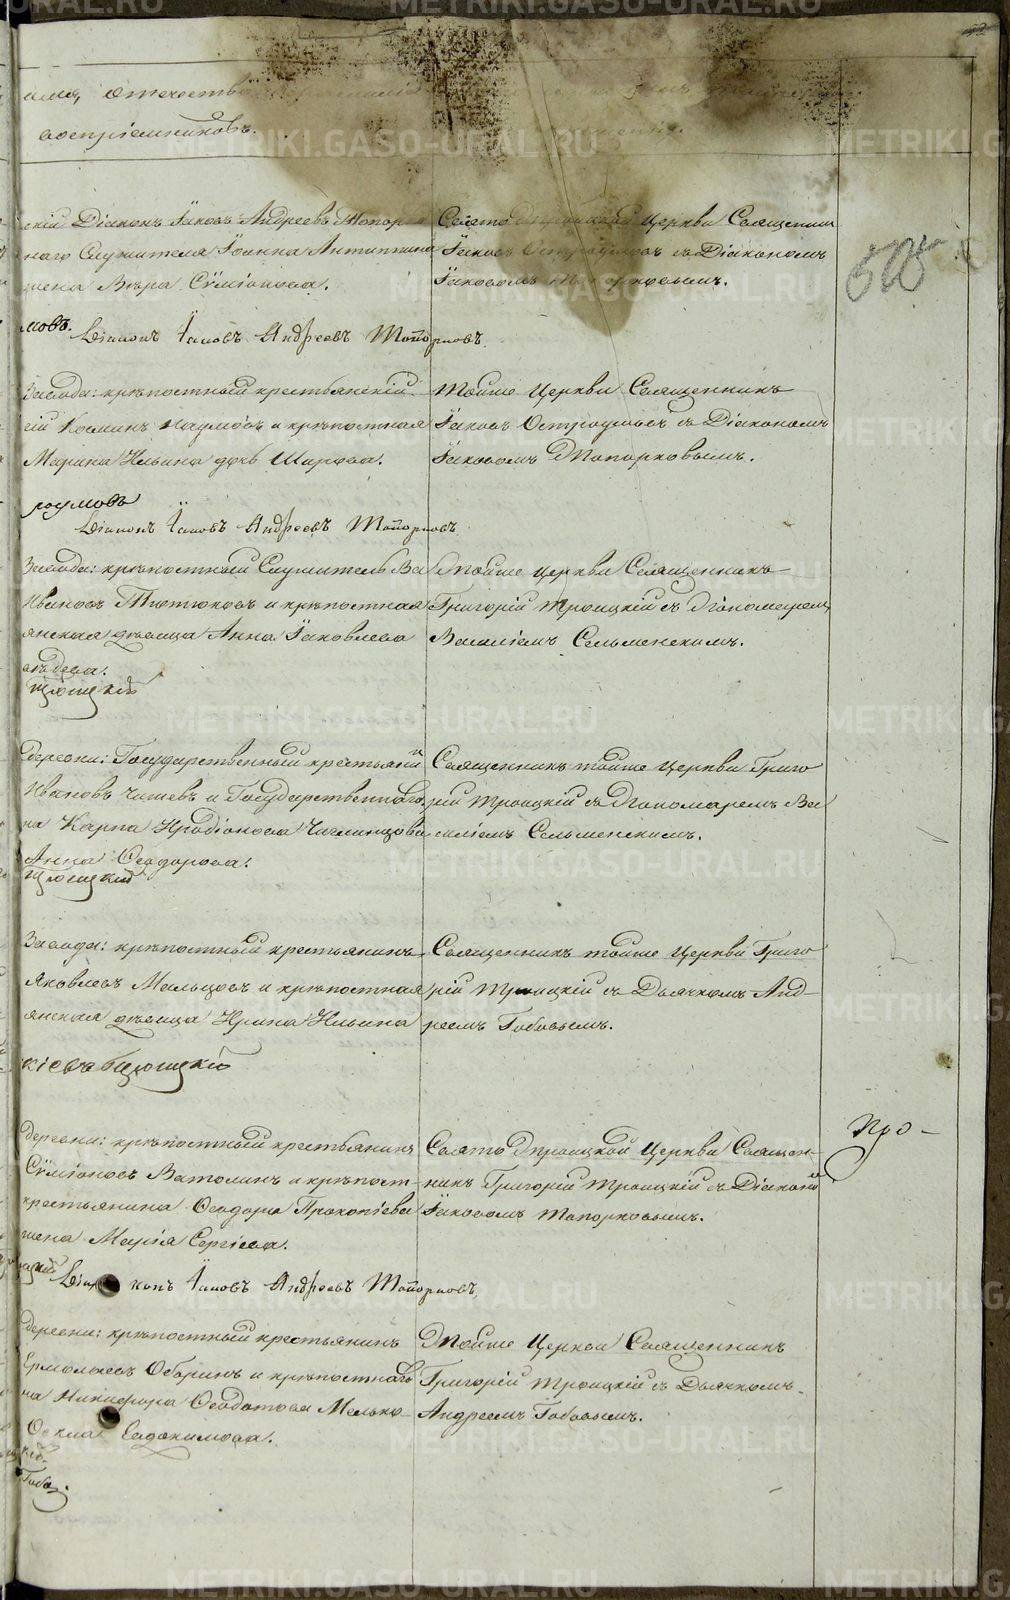 имя, отечество
воспріемниковъ.
скій Діаконъ Іаковъ Андреевъ Топорко
наго Служителя Іоанна Антипина
жена Вѣра Сѵміонова.
Свято Троицкой Церкви Священни
Іаковъ Остроумовъ съ Діакономъ
Іаковомъ Топорковымъ.
505
мовъ. Діаконъ Іаковъ Андреевъ Топорковъ.
Завода: крѣпостный крестьянскій
Козминъ Наумовъ и крѣпостная
Марина Ильина дочь Шарова.
Тойже Церкви Священникъ
Іаковъ Остроумовъ съ Діакономъ
Іаковомъ Топорковымъ.
роумовъ
Діаконъ Іаковъ Андреевъ Топорковъ.
Завода: крѣпостный Служитель Ва
Ивановъ Тютюковъ и крѣпостная
янская дѣвица Анна Іаковлева
Тойже Церкви Священникъ
Григорій Троицкій съ Пономаремъ
Василіемъ Сельменскимъ.
Троицкій
деревни: Государственный крестьяни
Ивановъ Чишевъ и Государственнаго
на Карпа Иродіонова
Анна Ѳеодорова.
Священникъ тойже Церкви Григо
рій Троицкій съ Пономаремъ Ва
силіемъ Сельменскимъ.
Троицкій
Завода: крѣпостный крестьянинъ
Яковлевъ Мальцовъ и крѣпостная
янская дѣвица Ирина Ильина
Священникъ тойже Церкви Григо
рій Троицкій съ Дьячкомъ Анд-
реемъ Бобовымъ.
Троицкій
деревни: крѣпостный крестьянинъ
Сѵміоновъ Ватолинъ и крѣпост-
крестьянина Ѳеодора Прокопіева
жена Марія Сергіева.
Свято Троицкой Церкви Священ-
никъ Григорій Троицкій съ Діакономъ
Іаковомъ Топорковымъ.
Про-
Діаконъ Іаковъ Андреевъ Топорковъ.
деревни: крѣпостный крестьянинъ
Ермолаевъ Обаринъ и крѣпостнаго
на Никифора Ѳеодотова Мелько-
Ѳекла Евдокимова.
Тойже Церкви Священникъ
Григорій Троицкій съ Дьячкомъ
Андреемъ Бобовымъ.
METRIKI.GASO-URAL.RU